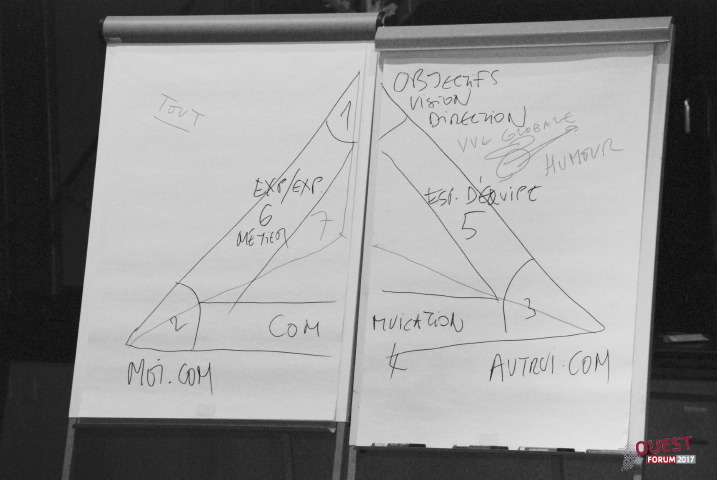 TOUT
1
EXP/EXP
6
MÉTIER
7
2
COM
MOI.COM
OBJECTIFS
VISION
DIRECTION
VUE GLOBALE
HUMOUR
ESP. D'ÉQUIPE
5
3
MUICATION
4
AUTRUI.COM
QUEST
FORUM 2017